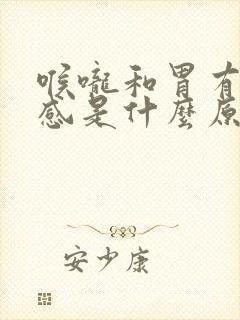 喉嚨和胃有
感是什麼原
安少康